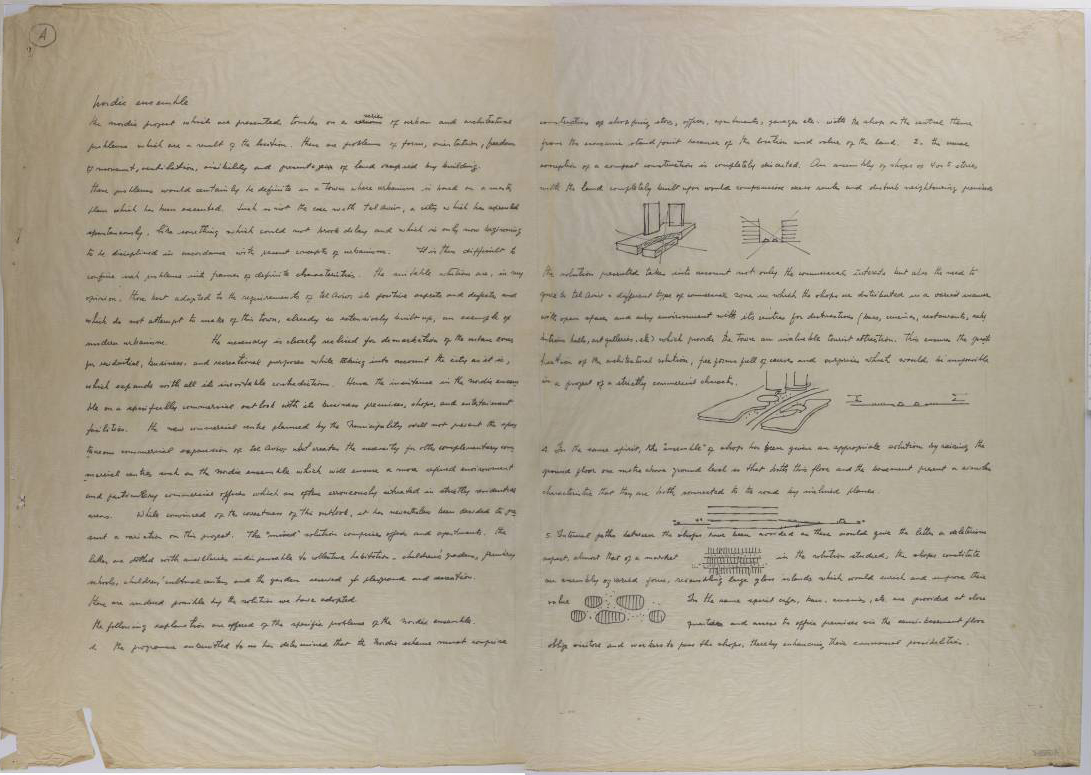 A
Nordic ensemble
The nordic project which are presented touches on a series of urban and architectural
problems which are a result of the location. There are problems of forms, orientation, freedom
of movement, ventilation, visibility and of land occupied by building.
These problems would certainly be definite in a Town where urbanism is based on a
plan which has been executed. Such is not the case with Tel Aviv, a city which has expanded
spontaneously, like something which could not brook delay and which is only now beginning
to be disciplined in accordance with recent concepts of urbanism. It is then difficult to
confine such problems with frames of definite characteristics. The suitable solution are, in my
opinion, those best adapted to the requirements of Tel Aviv its positive aspects and defects and
which do not attempt to make of this town, already so extensively built up, an example of
modern urbanism. The necessity is clearly realised for demarkation of the urban area
for residential, business, and recreational purposes while taking into account the city as it is,
which expands with all its inevitable contradictions. Hence the insistence in the Nordic ensem
ble on a specifically commercial outlook with its business premises, shops, and entertainment
facilities. The new commercial centre planned by the Municipality will not prevent the spon
taneous commercial expansion of Tel Aviv and creates the necessity for other complementary com
mercial centres such as the Nordic ensemble which will ensure a more refined environment
and particularly commercial offices which are often erroneously situated in strictly residential
areas. While convinced of the correctness of this outlook, it has nevertheless been decided to pre
sent a variation on this project. The "mixed" solution comprises offices and apartments. The
latter are dotted with ancillaries indispensable to collective habitation, children's gardens, primary
schools, children's cultural centres and the garden reserved for playground and recreation.
These are rendered possible by the solution we have adopted.
The following explanation are offered of the specific problems of the Nordic ensemble.
1. The programme submitted to us has determined that the Nordic scheme must comprise
construction of shopping stores, offices, apartments, garages etc. with the shops as the central theme
from the economic stand point because of the location and value of the land. 2. The usual
conception of a compact construction is completely discarded. An assembly of shops of 4 or 5 stories
with the land completely built upon would compromise access routes and disturb neighbouring premises
The solution presented takes into account not only the commercial interests but also the need to
give to Tel Aviv a different type of commercial zone in which the shops are distributed in a varied manner
with open spaces and airy environment with its centres for distractions (bars, cinemas, restaurants, exhi
bition halls, art galleries, etc) which provide the Town an invaluable tourist attraction. This ensures the justi
fication of the architectural solution, free forms full of curves and surprises which would be impossible
in a project of a strictly commercial character.
4. In the same spirit, the "ensemble" of shops has been given an appropriate solution by raising the
ground floor one metre above ground level so that both this floor and the basement present a similar
characteristic that they are both connected to the road by inclined planes.
5. Internal paths between the shops have been avoided as these would give the latter a deleterious
aspect, almost that of a market in the solution studied, the shops constitute
an assembly of varied forms, resembling large glass islands which would enrich and improve their
value In the same spirit cafes, bars, cinemas, etc. are provided at close
quarters and access to office premises via the semi-basement floor
oblige visitors and workers to pass the shops, thereby enhancing their commercial possibilities.